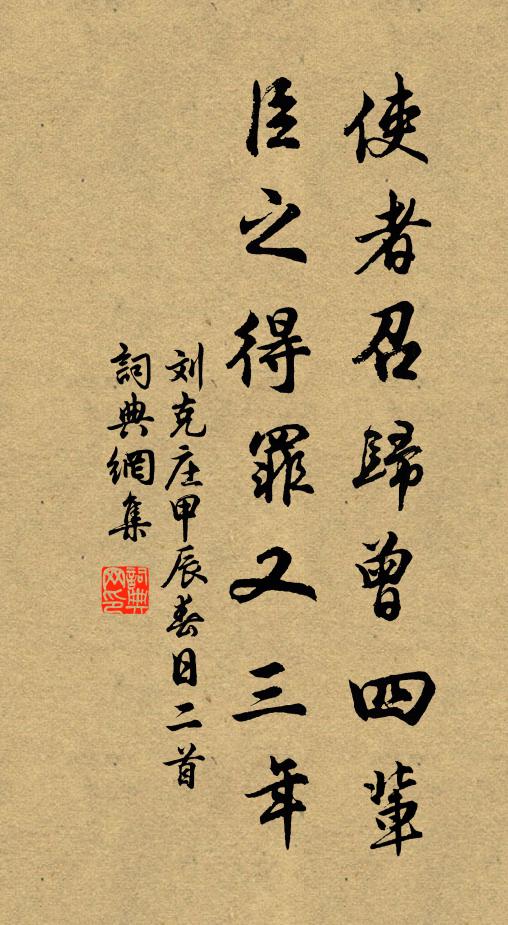 使者召歸曾四輩
臣之得罪又三年
刘克庄甲辰春日二首
詞典網集
詞典網印